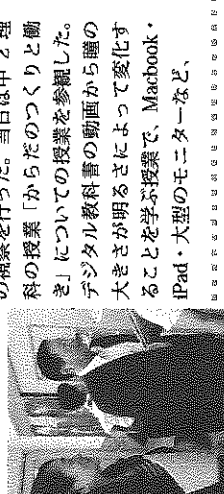 の視察を行った。当日は中2理
科の授業「からだのつくりと働
き」についての授業を参観した。
デジタル教科書の動画から瞳の
大きさが明るさによって変化す
ることを学ぶ授業で、Macbook・
iPad・大型のモニターなど、